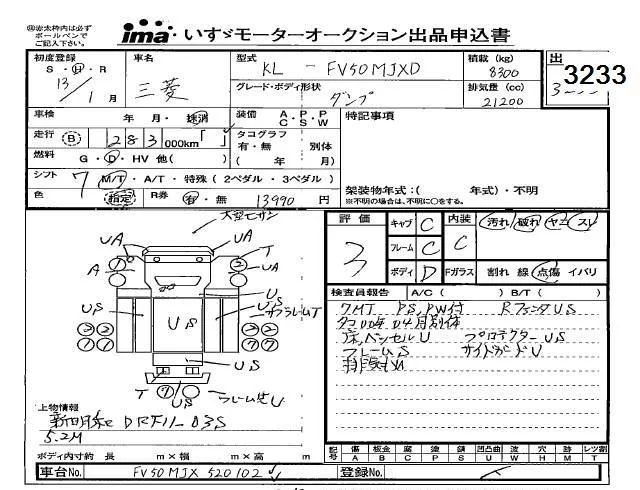 ㊟赤太枠内は必ず
ボールペンで
ご記入下さい。
ima いすゞモーターオークション出品申込書
初度登録 車名 型式 積載 (kg) 出
S・H・R 三菱 KL - FV50MJXD 8300 3233
13/1月 グレード・ボディ形状 排気量 (cc)
ダンプ 21200
車検 年 月・抹消 装備 A・P・P C S W 特記事項
走行 B 283 000km「 」 タコグラフ
有・無 別体
燃料 G・D・HV 他( ) ( 年 月)
シフト 7 M/T・A/T・特殊 (2ペダル・3ペダル)
架装物年式:( 年式)・不明
色 指定 R券 有・無 13990 円 ※不明の場合は、不明に○をする。
評価 キャブ C 内装 汚れ 破れ ヤニ スレ
3 フレーム C C
ボディ D Fガラス 割れ 線 点傷 イバリ
検査員報告 A/C ( ) B/T ( )
7MT PS,PW付 RフェンダUS
タコ00年04月別体
床,ベッセルU プロテクターUS
フレームS サイドガードU
UA UA T
A UA
U
US US US
US
T US
上物情報
新明和 DRF11-03S
5.2M
記号 傷 板金 腐 塗 錆 凹凸曲 波 穴 跡 レンズ割
A B C P S U W H M T
ボディ内寸約 長 m×幅 m×高 m
車台No. FV50MJX 520102 登録No.